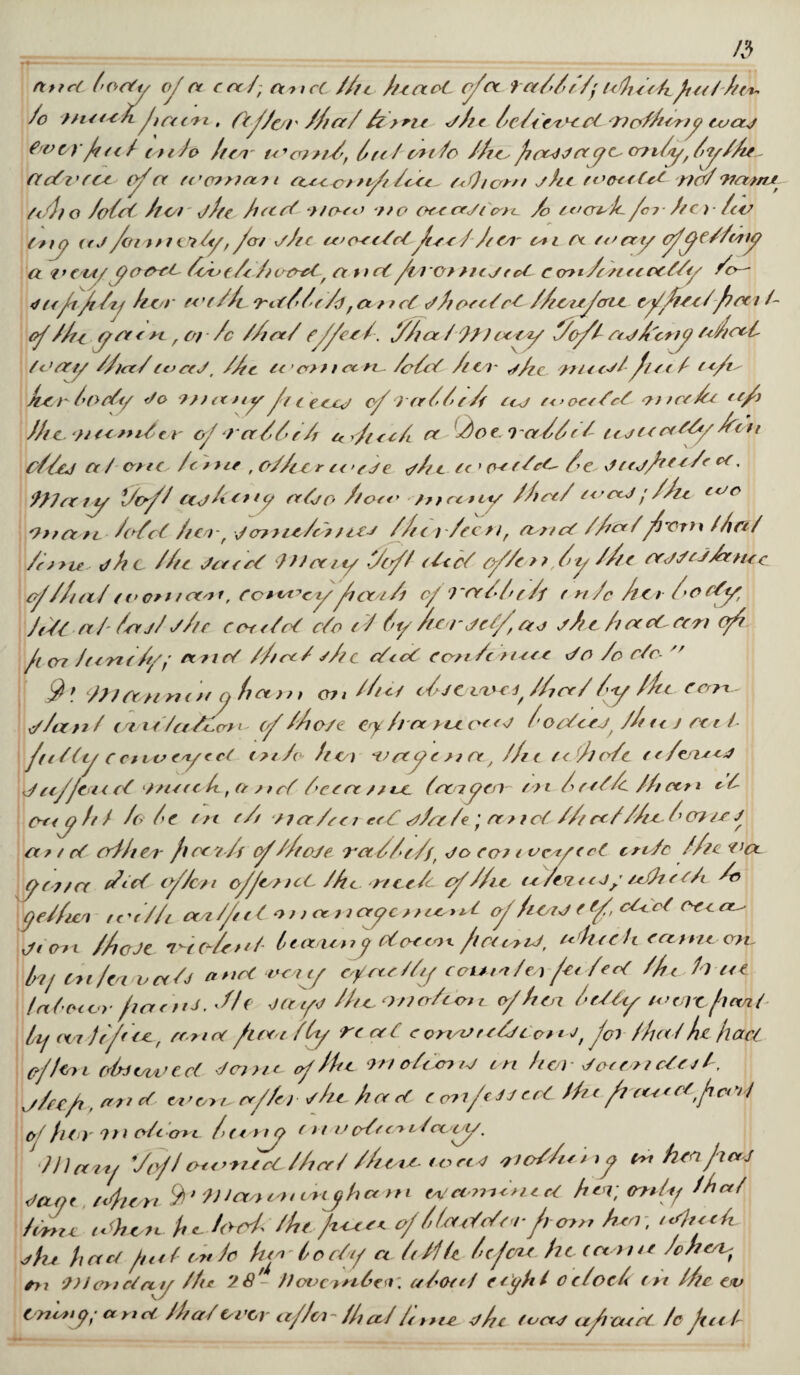 13
and body of a cat; and the head of a rabbit; which put her
to much pain. After that time she believed nothing was
ever put into her womb, but into the passage only, by the
advice of a woman accomplice whom she would not name
who told her she had now no occasion to work for her liv
ing as formerly, for she would put her in a way of getting
a very good livelihood, and promised continually to
supply her with rabbits, and should therefore put part
of the gain, or to that effect. That Mary Toft asking what
way that was, the woman told her she must put up
her body so many pieces of rabbits as would make up
the number of rabbits which a Doe rabbit usually kin
dles at one time, otherwise she would be suspected.
Mary Toft asking also how many that was; the wo
man told her, sometimes thirteen, and that from that
time she the said Mary Toft did often by the assistance
of that woman, convey parts of rabbits into her body,
till at last she could do it by herself, as she had an op
portunity; and that she did continue so to do."
Dr. Manningham on this observes, that by the con-
stant irritation of those extraneous bodies, thus art-
fully conveyed into her vagina, the whole uterus
suffered much, and became larger in bulk than it
ought to be in its natural state; and that the bones
and other parts of those rabbits, so conveyed into the va
gina did often offend the neck of the uterus, which to
gether with artful management of herself, did occa-
sion those violent bearing down pains, which came on
by intervals and very exactly counterfeited the true
labour pains. He says the motion of her belly were part
ly artifice, and partly real convulsions, for that he had
often observed some of the motions in her soundest
sleep, and even after she had confessed the fraud, part
of her motion being involuntary.
Mary Toft owned that there was nothing in her pas
sage, when Dr. Manningham examined her; only that
time when he took the piece of bladder from her, which
she had put into her body a little before he came to her,
on Monday the 28th November. about eight oclock in the ev
ening; and that ever after that time she was afraid to put